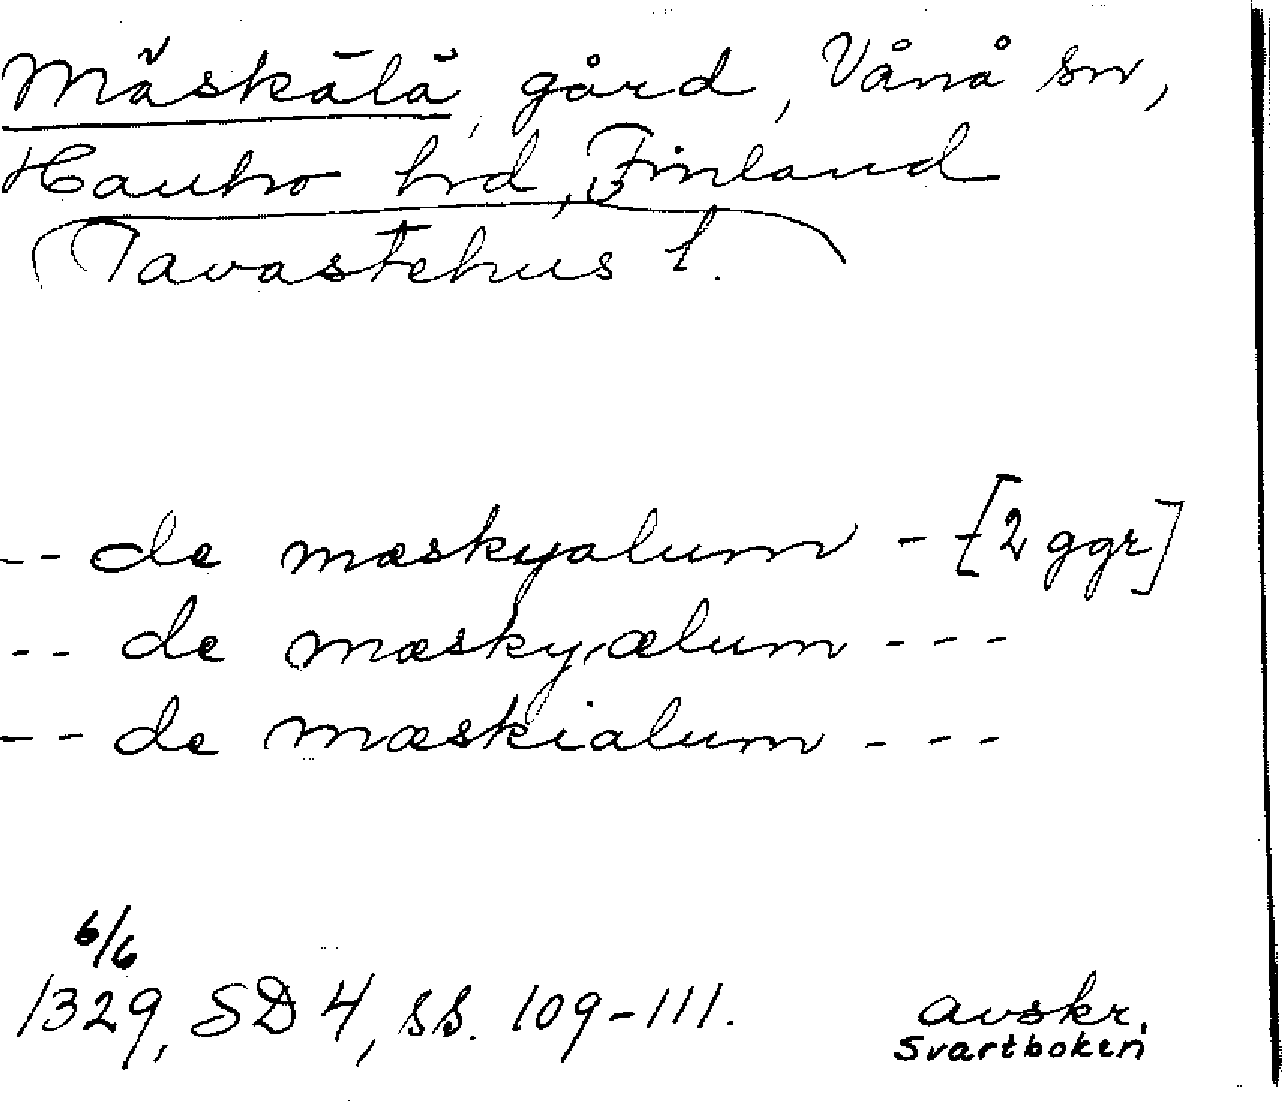 Mäskälä, gård, Vånå sn,
Hauho hrd, Finland
(Tavastehus l.
-- de mæskyalum - - [2 ggr]
-- de mæskyælum ---
-- de mæskialum ---
6/6
1329, SD 4, ss. 109-111. avskr.
Svartboken